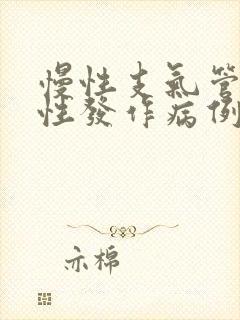 慢性支氣管
性發作病例
亦棉